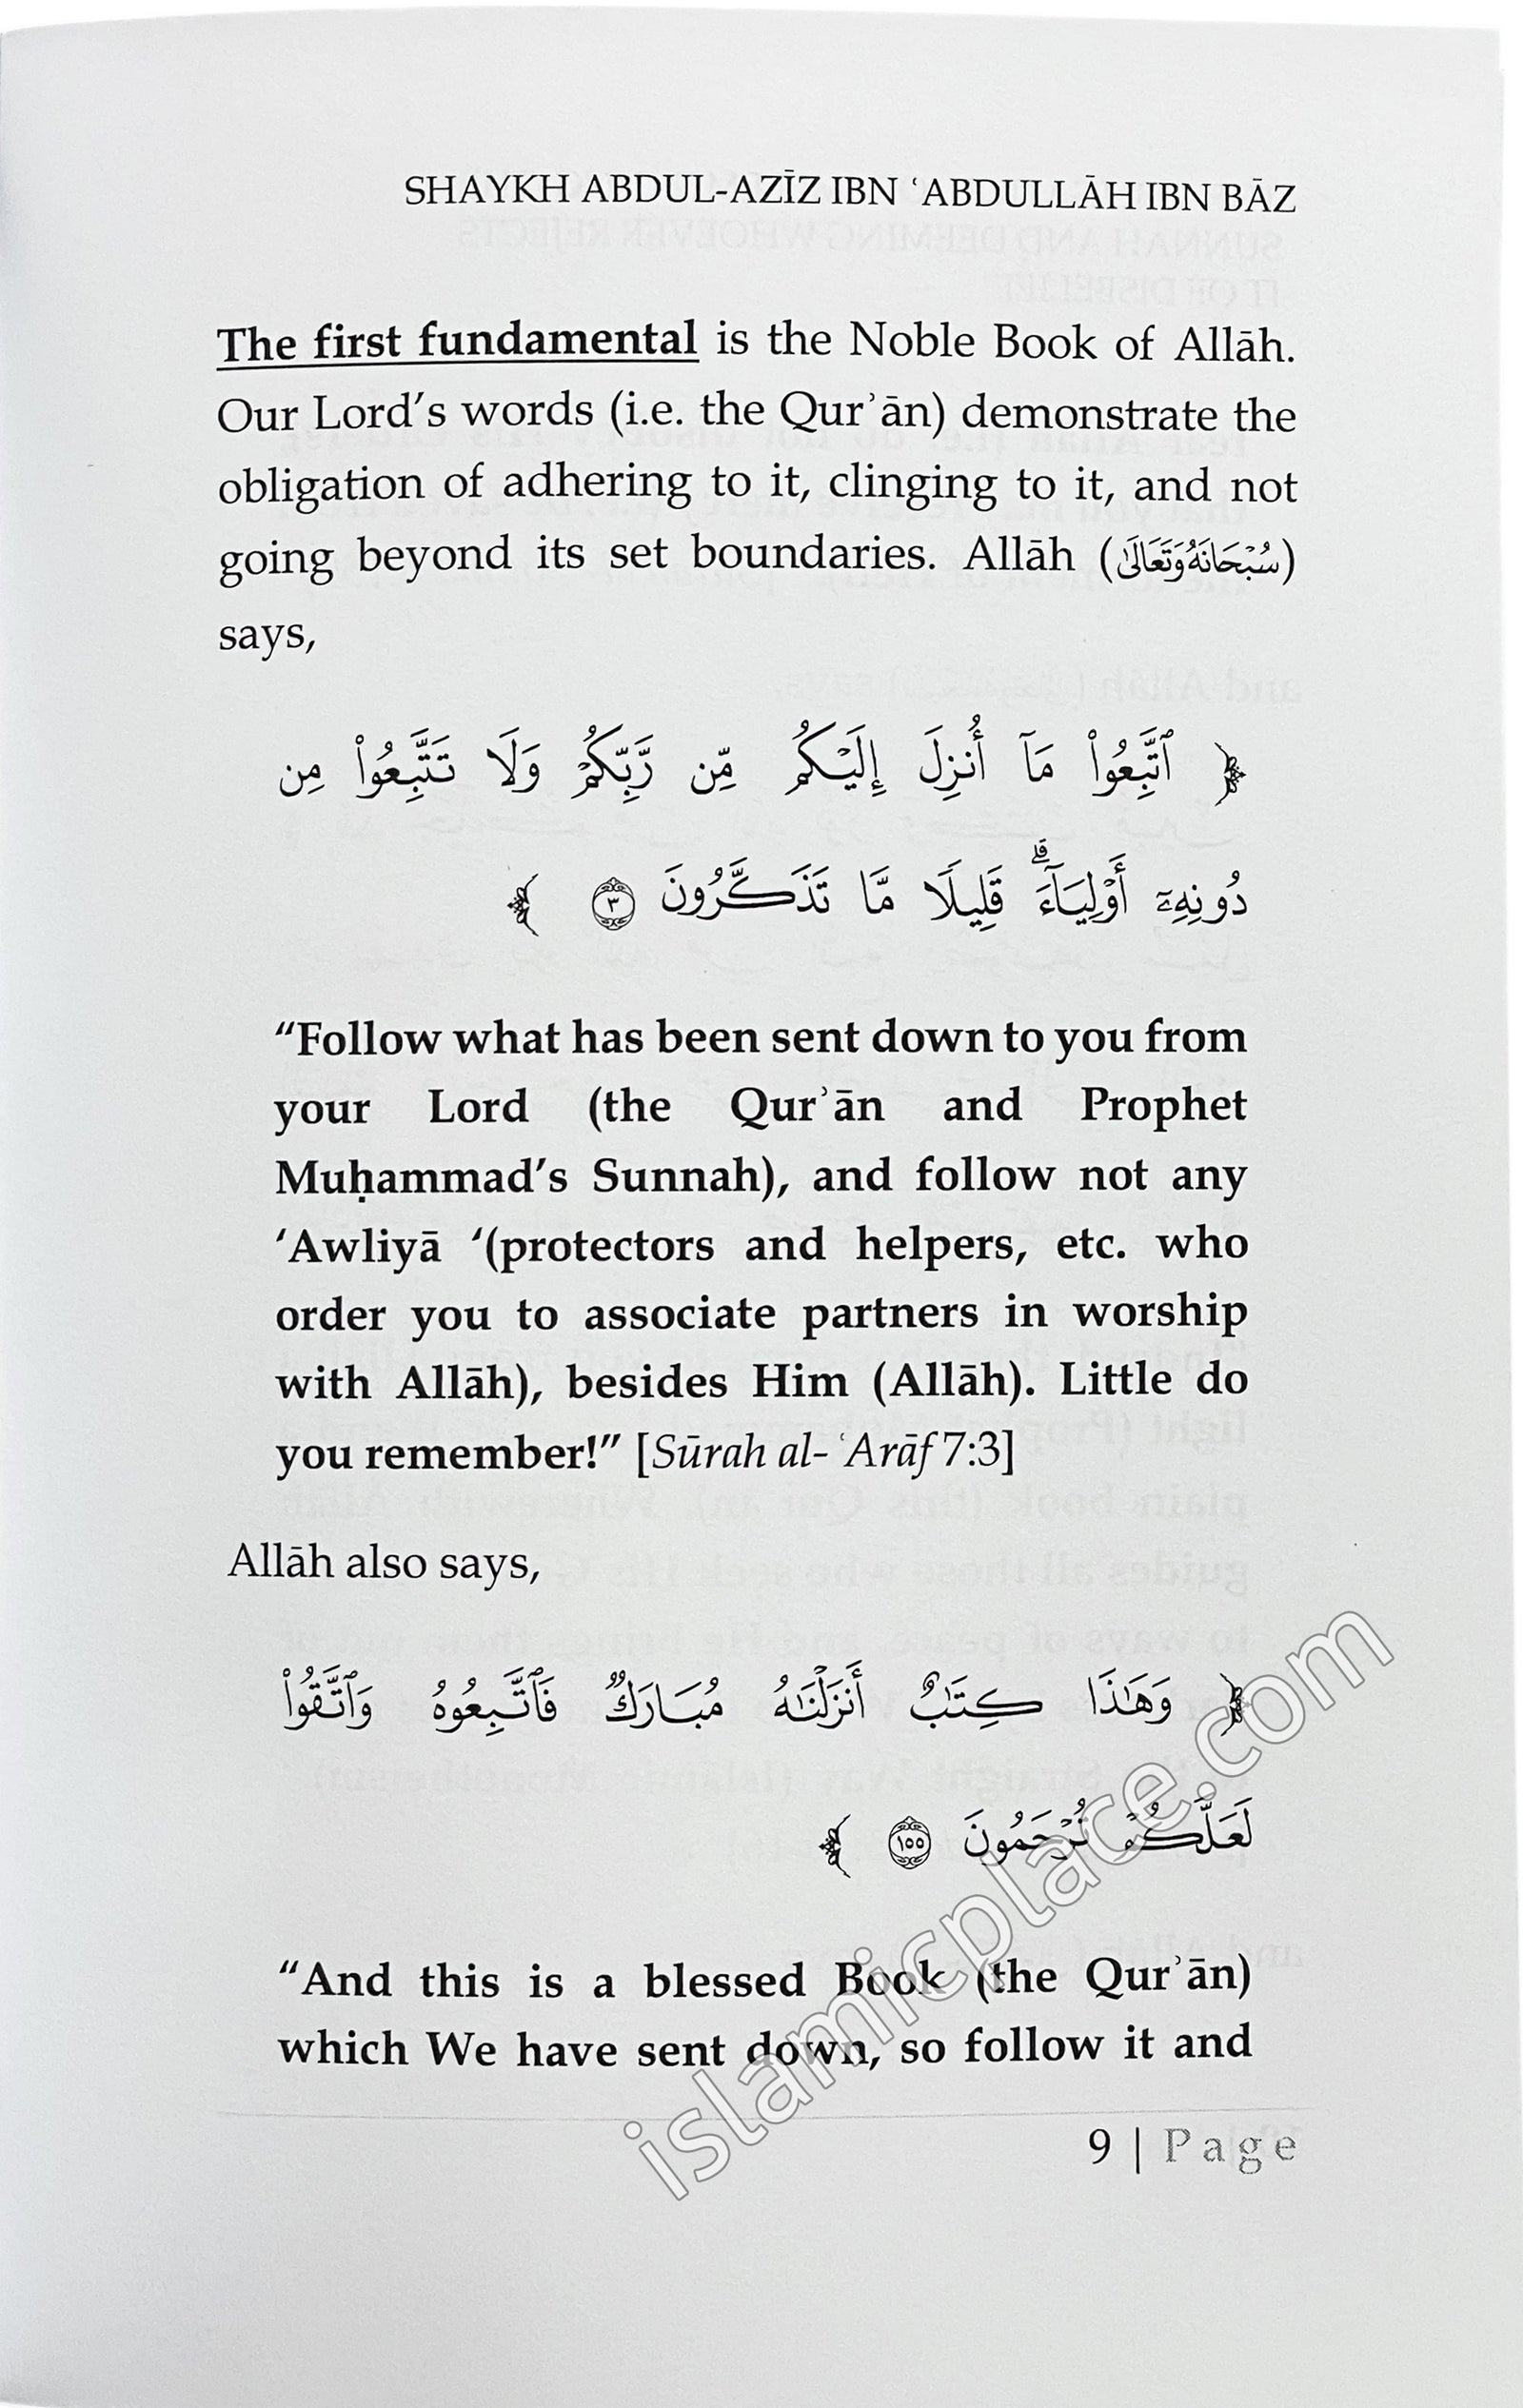 SHAYKH ABDUL-AZĪZ IBN ʿABDULLĀH IBN BĀZ
The first fundamental is the Noble Book of Allāh.
Our Lord’s words (i.e. the Qurʾān) demonstrate the
obligation of adhering to it, clinging to it, and not
going beyond its set boundaries. Allāh (سُبْحَانَهُ وَتَعَالَىٰ)
says,
﴿ ٱتَّبِعُوا۟ مَآ أُنزِلَ إِلَيْكُم مِّن رَّبِّكُمْ وَلَا تَتَّبِعُوا۟ مِن
دُونِهِۦٓ أَوْلِيَآءَ ۗ قَلِيلًا مَّا تَذَكَّرُونَ ٣ ﴾
“Follow what has been sent down to you from
your Lord (the Qurʾān and Prophet
Muḥammad’s Sunnah), and follow not any
‘Awliyā ‘(protectors and helpers, etc. who
order you to associate partners in worship
with Allāh), besides Him (Allāh). Little do
you remember!” [Sūrah al- ʿArāf 7:3]
Allāh also says,
﴿ وَهَـٰذَا كِتَـٰبٌ أَنزَلْنَـٰهُ مُبَارَكٌ فَٱتَّبِعُوهُ وَٱتَّقُوا۟
لَعَلَّكُمْ تُرْحَمُونَ ١٥٥ ﴾
“And this is a blessed Book (the Qurʾān)
which We have sent down, so follow it and
9 | Page
islamicplace.com